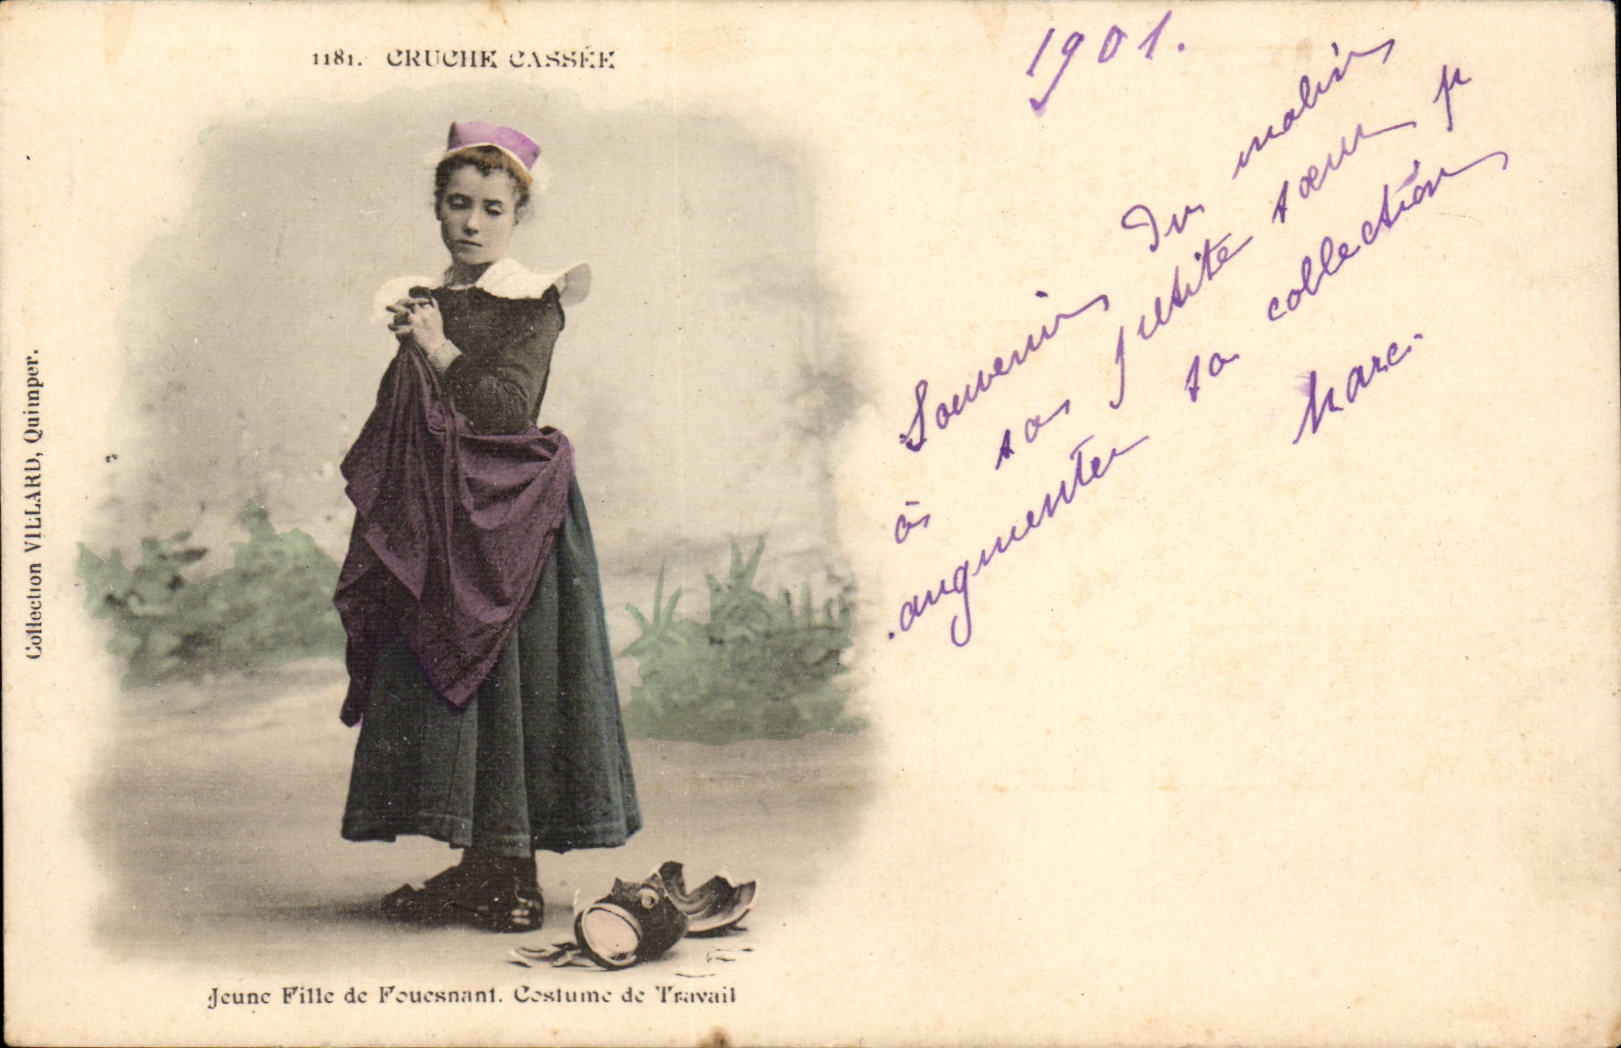 1181. CRUCHE CASSÉE
1901.
Souvenir Du malin
à sa petite sœur pr
augmenter sa collection
Marc.
Collection VILLARD, Quimper.
Jeune Fille de Fouesnant. Costume de Travail